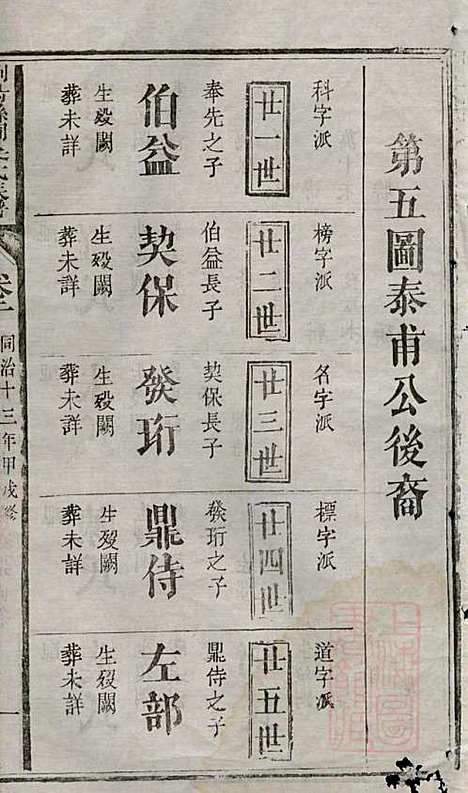 第五圖泰甫公後裔
科字派
廿一世
奉先之子
伯益
生殁闕
葬未詳
榜字派
廿二世
伯益長子
契保
生殁闕
葬未詳
名字派
廿三世
契保長子
發珩
生殁闕
葬未詳
標字派
廿四世
發珩之子
鼎侍
生殁闕
葬未詳
道字派
廿五世
鼎侍之子
左部
生殁闕
葬未詳
同治十三年甲戌修
一